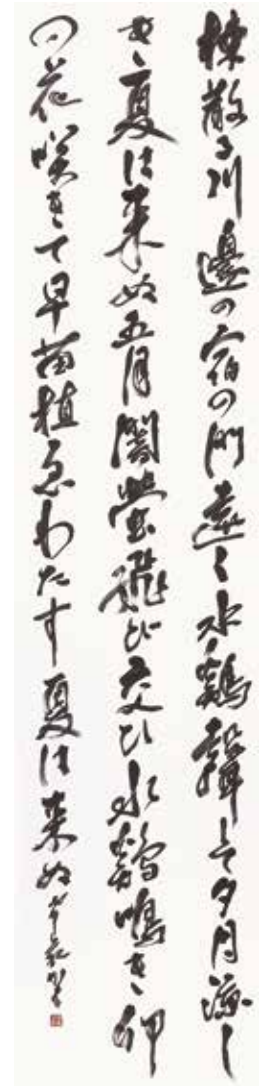 楝散る川邊の宿の門遠く水鶏聲して夕月涼し
き夏は来ぬ五月闇螢飛び交ひ水鶏鳴き卯
の花咲きて早苗植ゑわたす夏は来ぬ